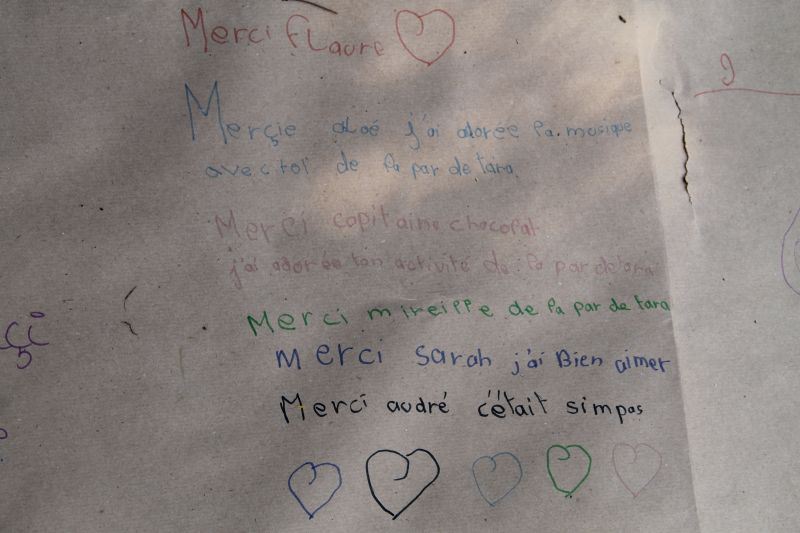 Merci fLaure
Merçie aloé j'ai adorée la musique
avec toi de la par de tara
Merci capitaine chocolat
j'ai adorée ton activité de la par de tara
Merci mireille de la par de tara
Merci sarah j'ai Bien aimer
Merci audré c'était simpas